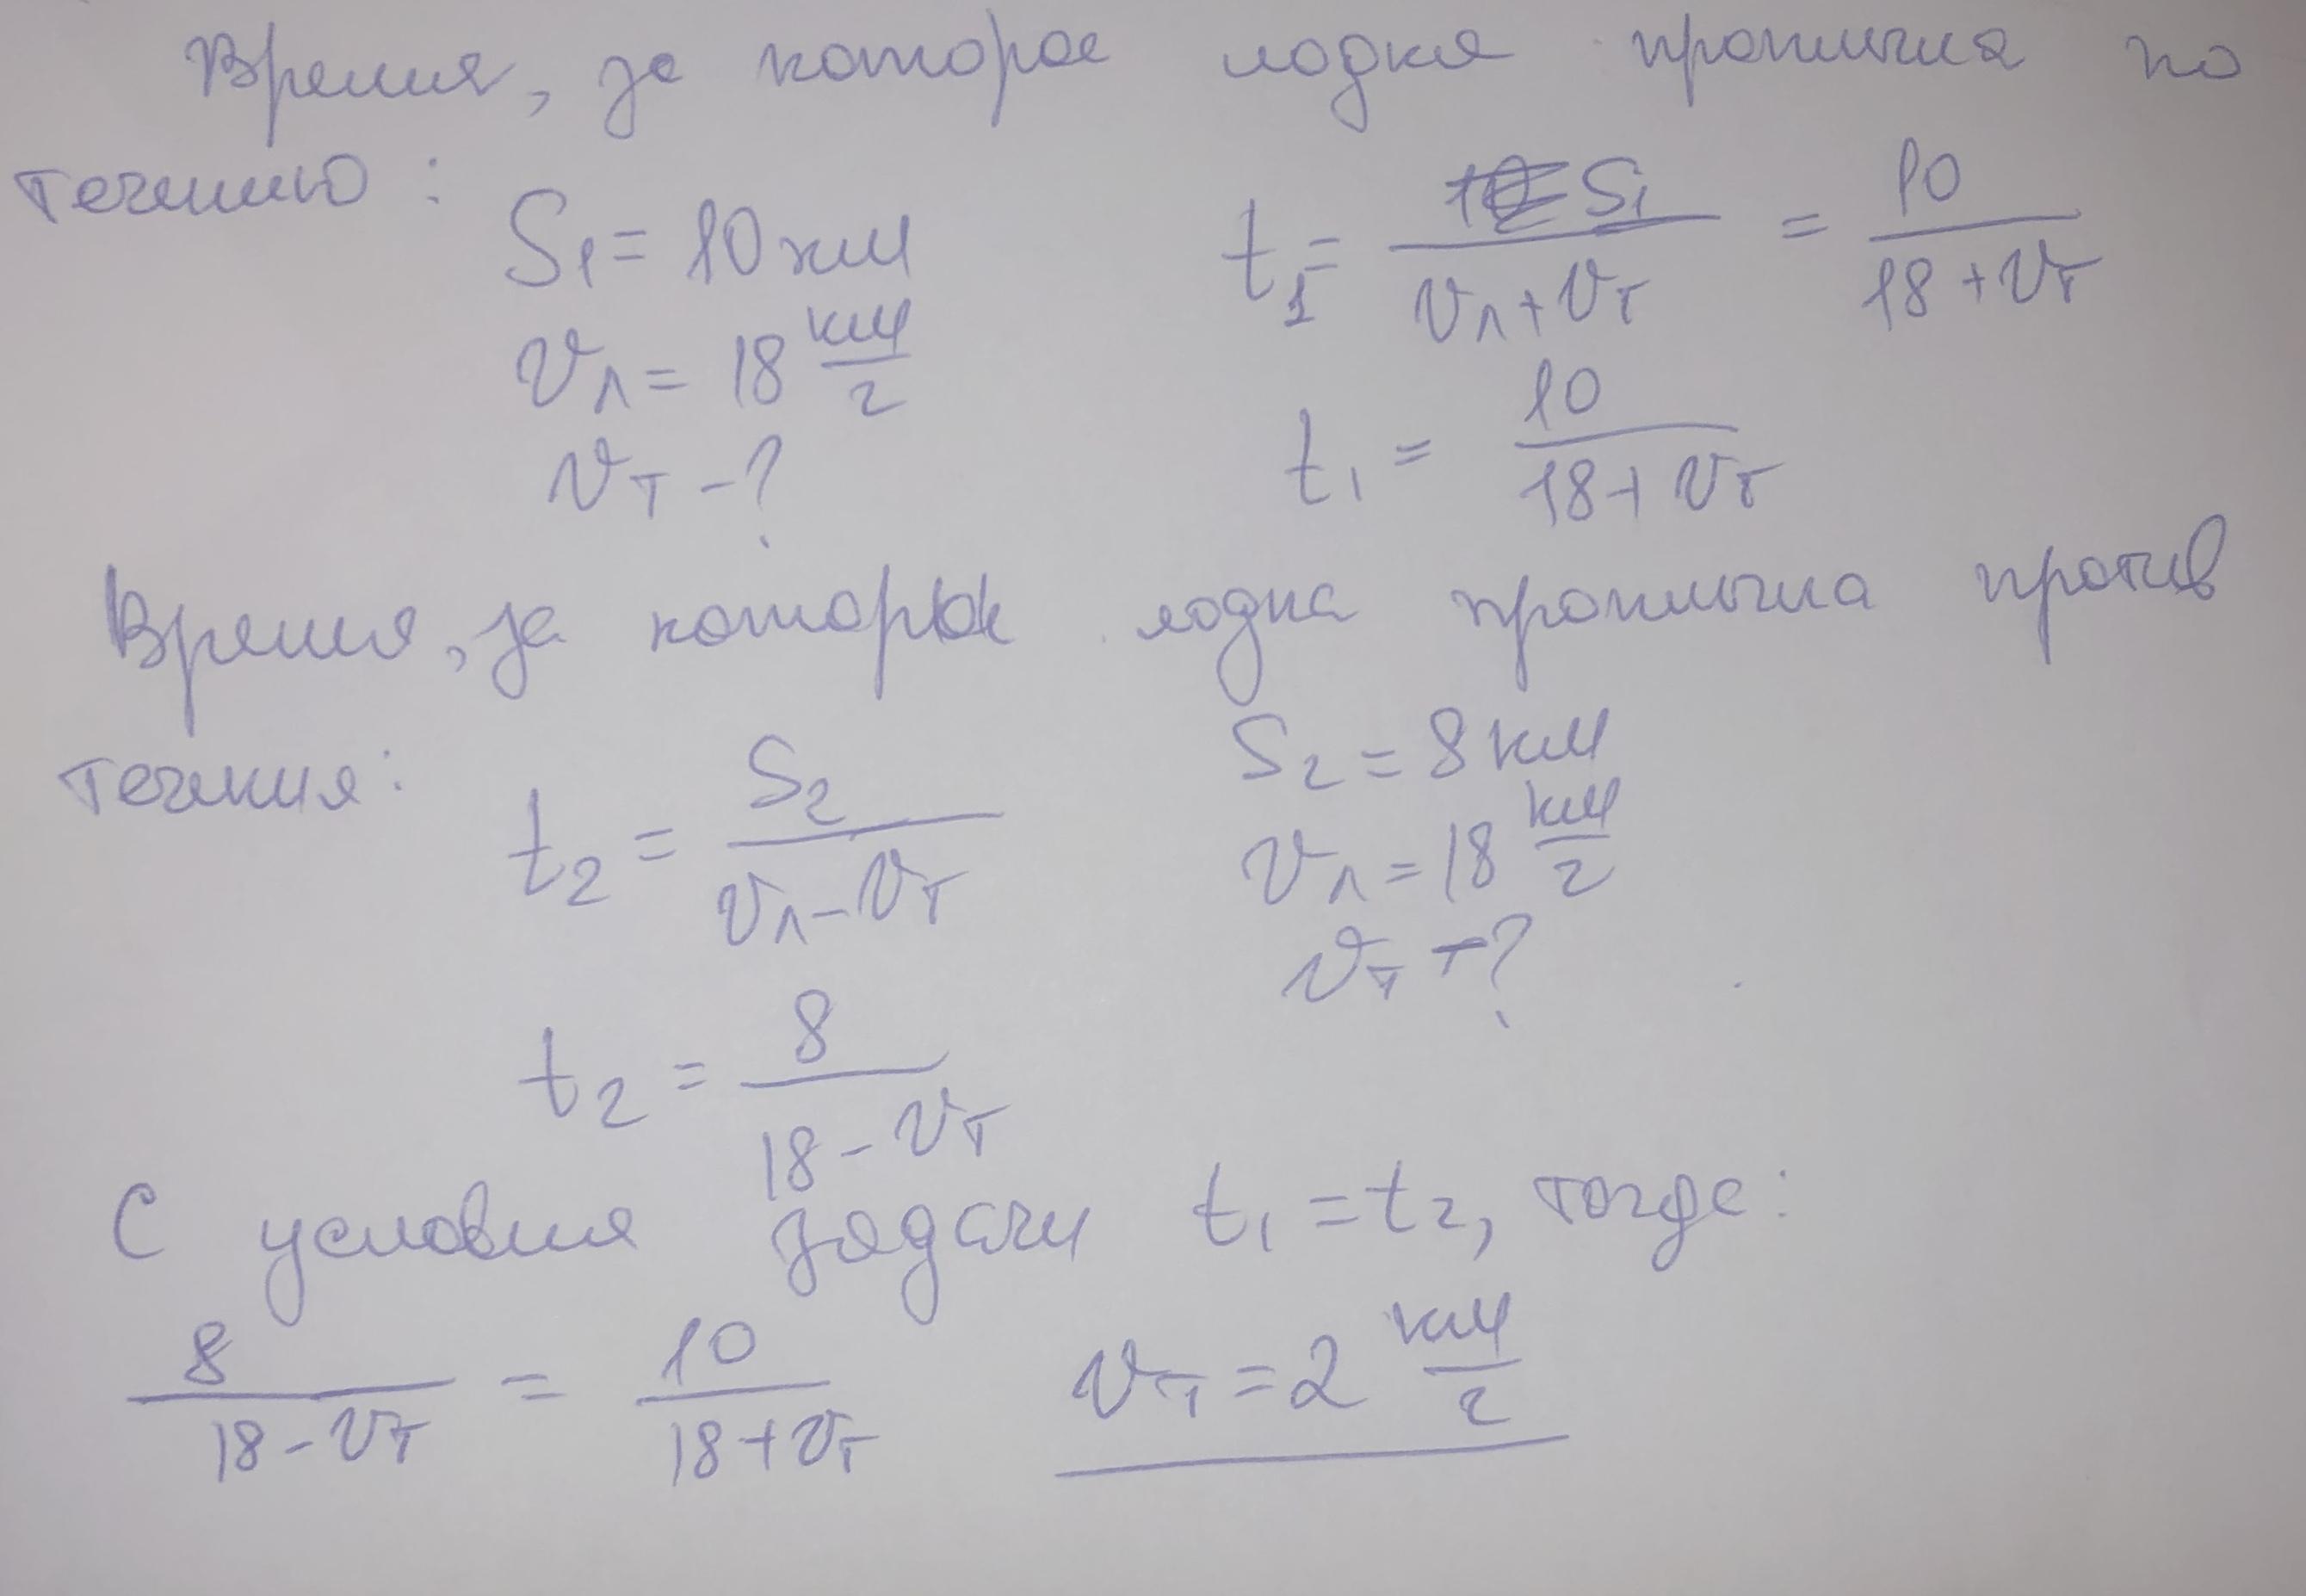 Время, за которое лодка проплыла по
течению:
S₁ = 10 км
t₁ = S₁ / (vл + vт) = 10 / (18 + vт)
vл = 18 км/г
vт - ?
t₁ = 10 / (18 + vт)
Время, за которое лодка проплыла против
течения:
t₂ = S₂ / (vл - vт)
S₂ = 8 км
vл = 18 км/г
vт - ?
t₂ = 8 / (18 - vт)
С условия задачи t₁ = t₂, тогда:
8 / (18 - vт) = 10 / (18 + vт)
vт = 2 км/г